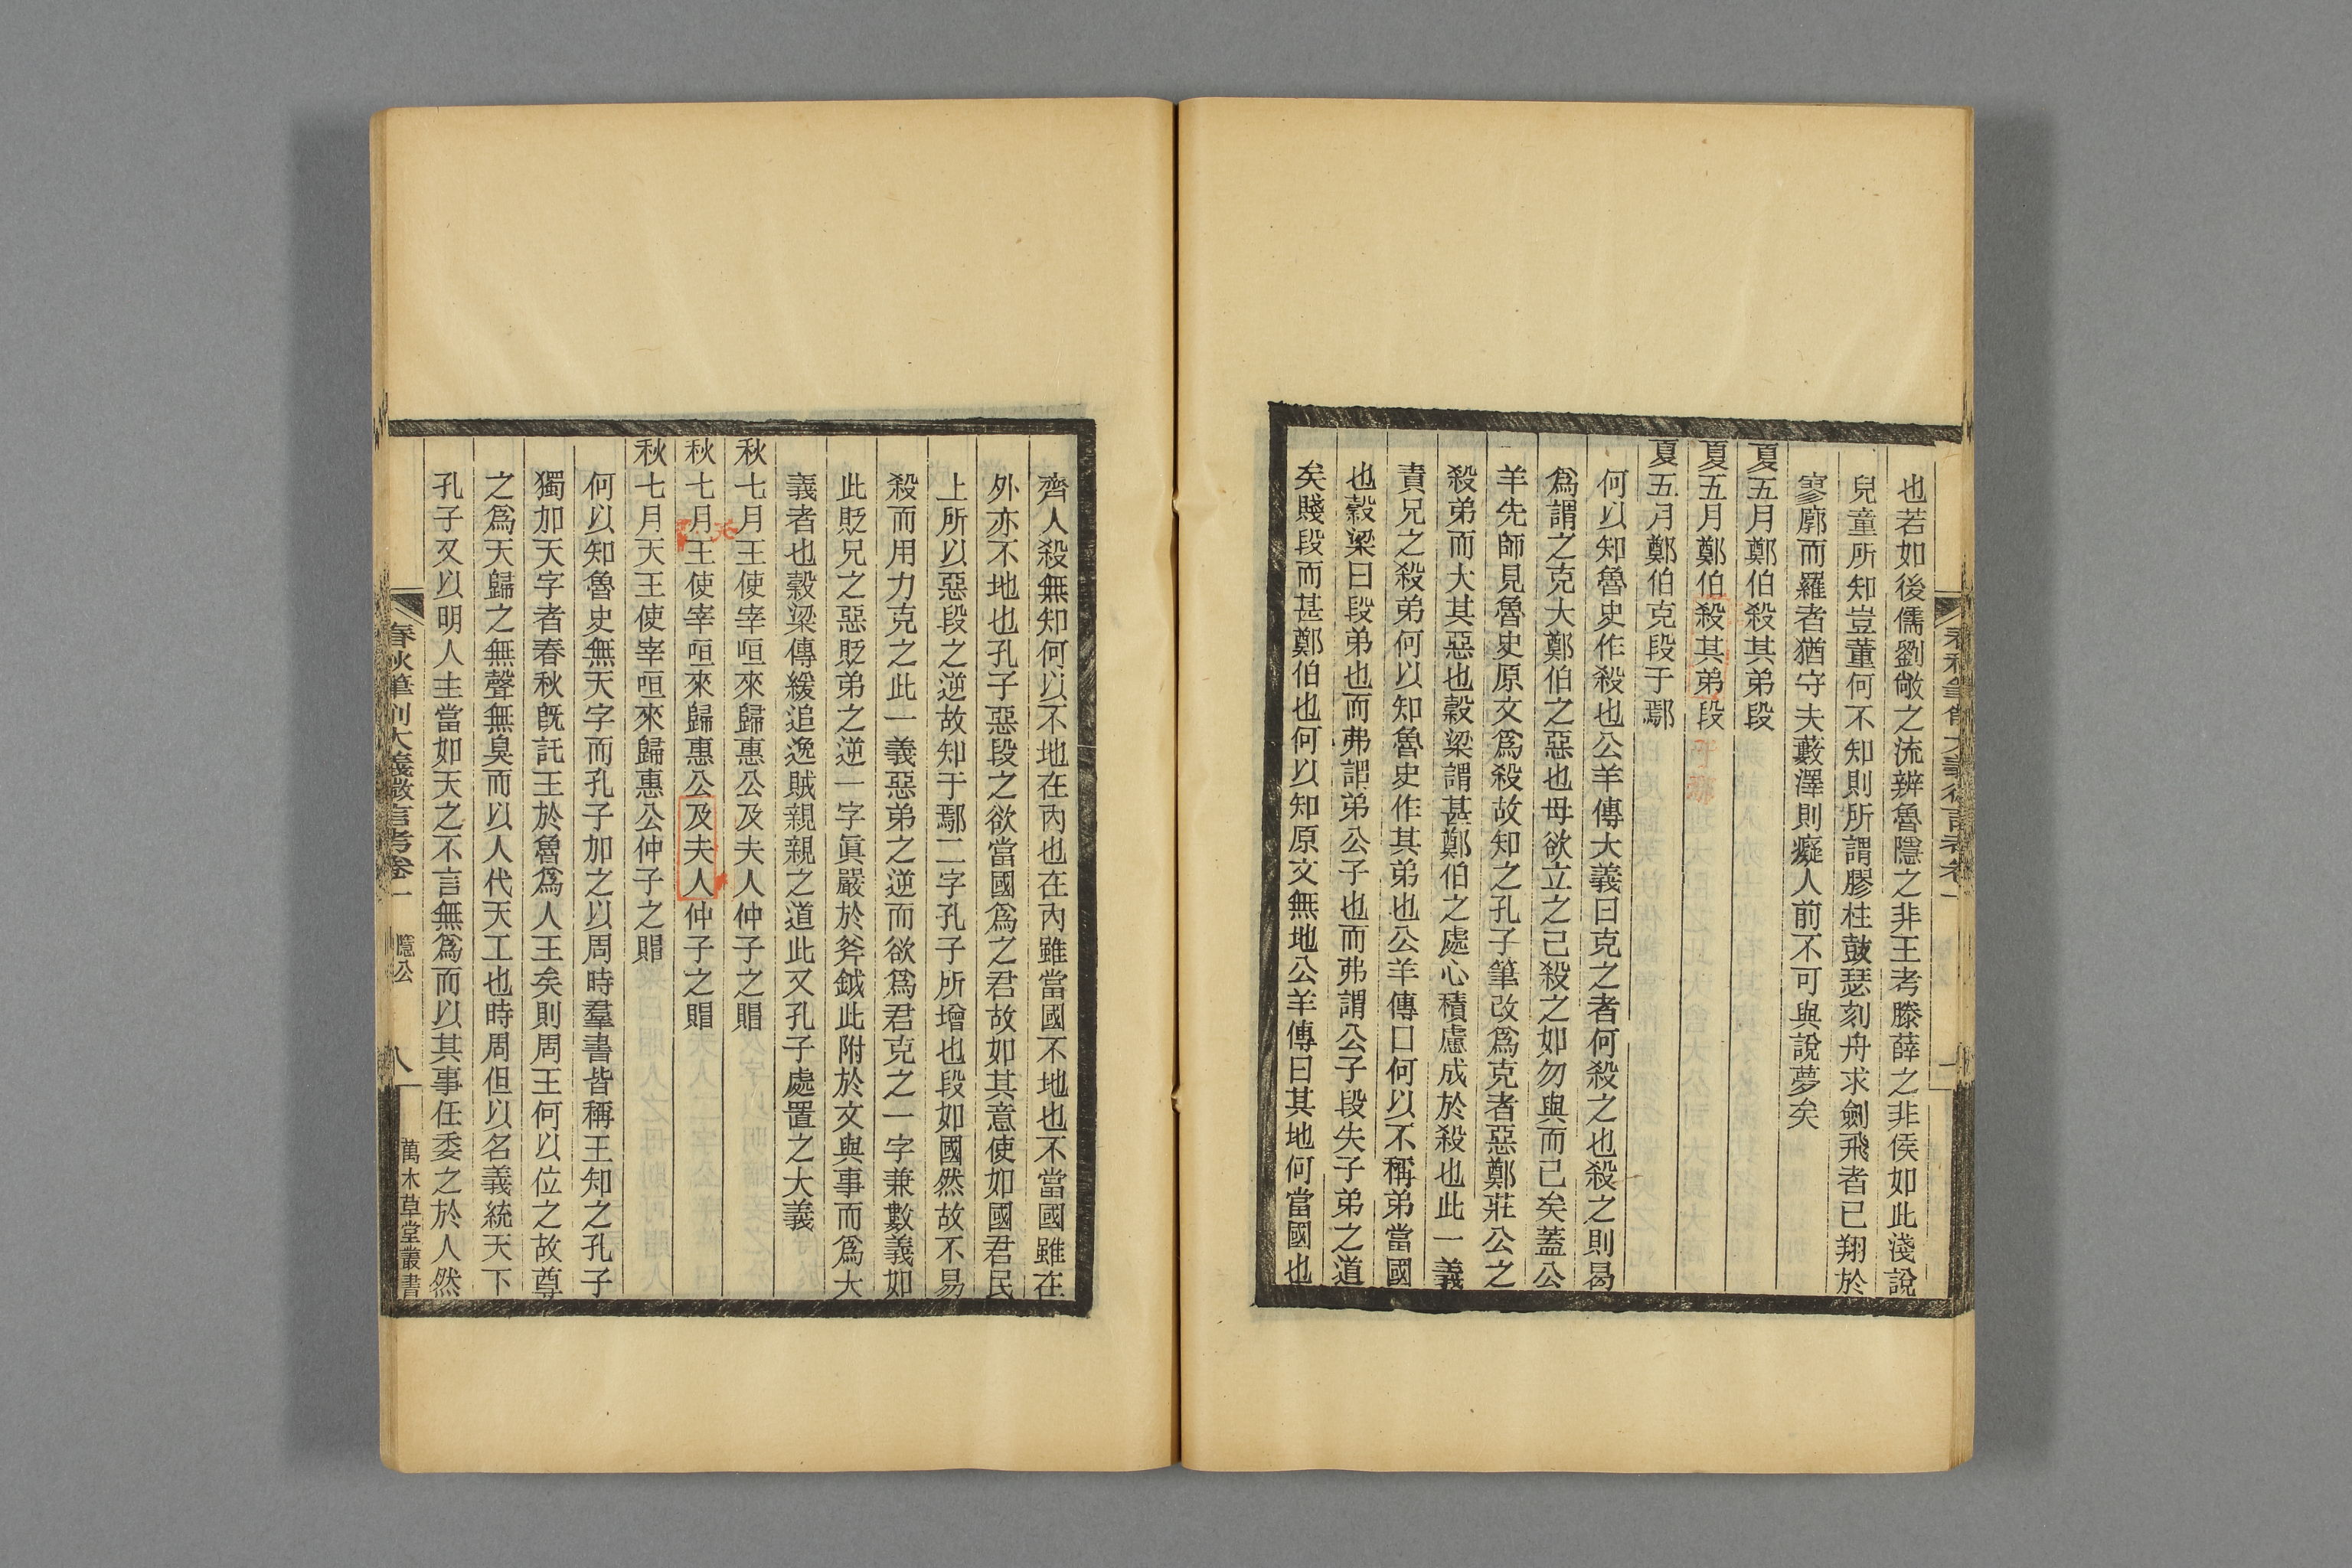 也若如後儒劉敞之流辨魯隱之非王考滕薛之非侯如此淺說
兒童所知豈董何不知則所謂膠柱鼓瑟刻舟求劍飛者已翔於
寥廓而羅者猶守夫藪澤則癡人前不可與說夢矣
夏五月鄭伯殺其弟段
夏五月鄭伯殺其弟段
于鄢
夏五月鄭伯克段于鄢
何以知魯史作殺也公羊傳大義曰克之者何殺之也殺之則曷
爲謂之克大鄭伯之惡也母欲立之己殺之如勿與而已矣蓋公
羊先師見魯史原文爲殺故知之孔子筆改爲克者惡鄭莊公之
殺弟而大其惡也穀梁謂甚鄭伯之處心積慮成於殺也此一義
責兄之殺弟何以知魯史作其弟也公羊傳曰何以不稱弟當國
也穀梁曰段弟也而弗謂弟公子也而弗謂公子段失子弟之道
矣賤段而甚鄭伯也何以知原文無地公羊傳曰其地何當國也
齊人殺無知何以不地在內也在內雖當國不地也不當國雖在
外亦不地也孔子惡段之欲當國爲之君故如其意使如國君民
上所以惡段之逆故知于鄢二字孔子所增也段如國然故不易
殺而用力克之此一義惡弟之逆而欲爲君克之一字兼數義如
此貶兄之惡貶弟之逆一字眞嚴於斧鉞此附於文與事而爲大
義者也穀梁傳緩追逸賊親親之道此又孔子處置之大義
秋七月王使宰咺來歸惠公及夫人仲子之賵
天
秋七月王使宰咺來歸惠公及夫人仲子之賵
秋七月天王使宰咺來歸惠公仲子之賵
何以知魯史無天字而孔子加之以周時羣書皆稱王知之孔子
獨加天字者春秋旣託王於魯爲人王矣則周王何以位之故尊
之爲天歸之無聲無臭而以人代天工也時周但以名義統天下
孔子又以明人主當如天之不言無爲而以其事任委之於人然
春秋筆削大義微言考卷一
隱公
八
萬木草堂叢書